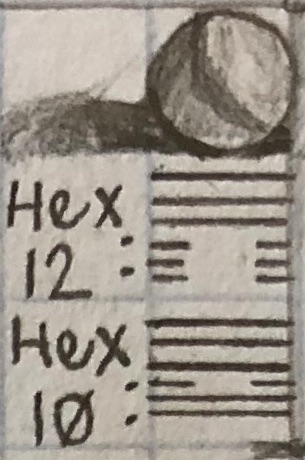 Hex
12:
Hex
10: